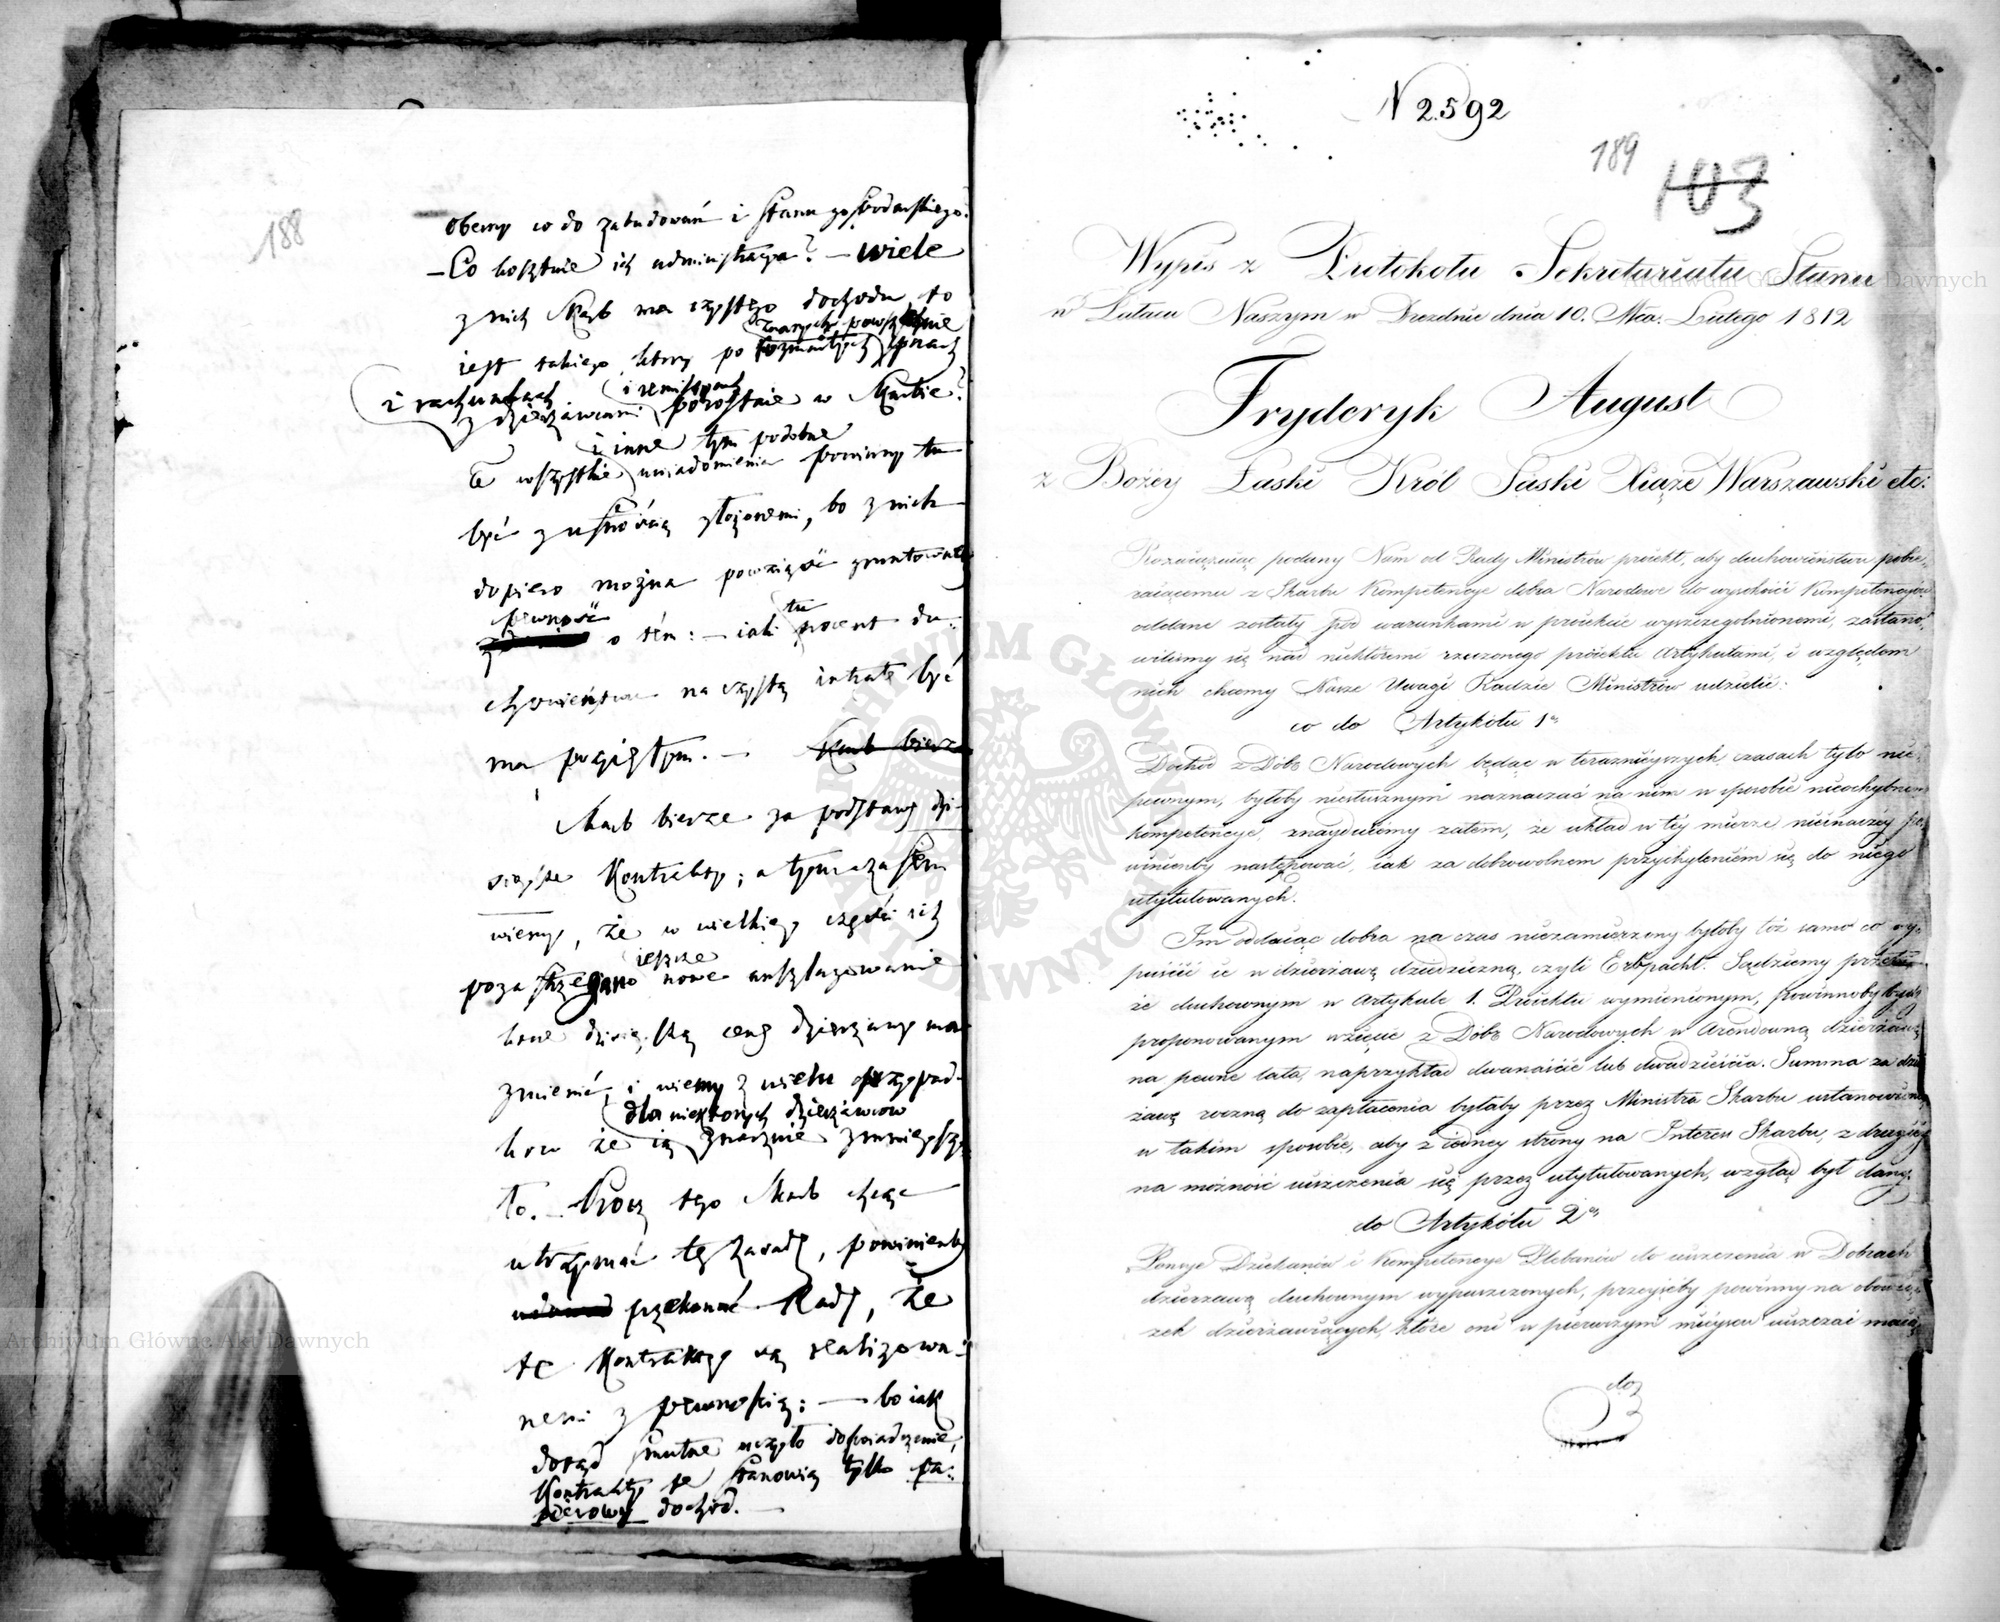 188
obecny co do zabudowań i stanu gospodarskiego.
– Co kosztuie ich administracya? – wiele
z nich Skarb ma czystego dochodu, to
iest takiego, ktory po
znanych powszechnie
rozmaitych
i rachunkach
i remissyach
z dzierżawcami pozostaie w Skarbie?
i inne tym podobne
te wszystkie uwiadomienia powinny tu
być z ufnością złożonemi, bo z nich
dopiero można powziąść gruntowną
pewność
o tém: – iaki tu procent du-
chowieństwa na czystą intratę być
ma przyiętym. – Skarb bierze
Skarb bierze za podstawę dzi-
sieysze Kontrakty; a tymczasem
wiemy, że w wielkiey części ich
pozastrzegano ieszcze nowe anszlagowanie
ktore dzisieyszą cenę dzierżawy ma
zmienić, i wiemy z wielu przypad-
dla niektorych dzierżawcow
kow że ią znacznie zmnieyszo-
to. – Procz tego Skarb chcąc
utrzymać tę zasadę, powinienby
przekonać Radę, że
te Kontrakty są realizowa-
nemi z pewnością: – bo iak
dotąd smutne uczyło doświadczenie,
Kontrakty te stanowią tylko pa-
pierowy dochod. –
N 2592
189
103
Wypis z Protokołu Sekretariatu Stanu
w Pałacu Naszym w Dreznie dnia 10. Mca. Lutego 1812
Fryderyk August
z Bożéy Łaski Król Saski Xiąże Warszawski etc:
Rozważaiąc podany Nam od Rady Ministrów proiekt, aby duchowieństwu pobie-
raiącemu z Skarbu Kompetencye dobra Narodowe do wysokości Kompetencyów
oddane zostały pod warunkami w proiekcie wyszczegolnionemi, zastano-
wiliśmy się nad niektóremi rzeczonego proiektu Artykułami, i względem
nich chcemy Nasze Uwagi Radzie Ministrów udzielić:
co do Artykółu 1o
Dochód z Dóbr Narodowych będąc w teraźnieyszych czasach tyło nie-
pewnym, byłoby niesłusznym naznaczać na nim w sposobie nieochybnym
kompetencye, znayduiemy zatem, że układ w téy mierze nieinaczey po-
winienby następować, iak za dobrowolnem przychyleniem się do niego
utytułowanych.
Im oddaiąc dobra na czas niezamierzony byłoby tóż samo co wy-
puścić ie w dzierżawę dziedziczną, czyli Erbpacht. Sądziemy przeto
że duchownym w Artykule 1. Proiektu wymienionym, powinnoby bydź
proponowanym wzięcie z Dóbr Narodowych w Arendowną dzierżawę
na pewne lata, naprzykład dwanaście lub dwadzieścia. Summa za dzier-
żawę roczną do zapłacenia byłaby przez Ministra Skarbu ustanowioną
w takim sposobie, aby z iedney strony na Interes Skarbu, z drugiéy
na możność uiszczenia się przez utytułowanych, wzgląd był dany.
do Artykółu 2o
Pensye Dziekanów i Kompetencye Plebanów do uiszczenia w Dobrach
dzierżawą duchownym wypuszczonych, przeyśćby powinny na obowią-
zek dzierżawiących, które oni w pierwszym mieyscu uiszczać maią
do
Archiwum Główne Akt Dawnych
ARCHIWUM GŁÓWNE AKT DAWNYCH